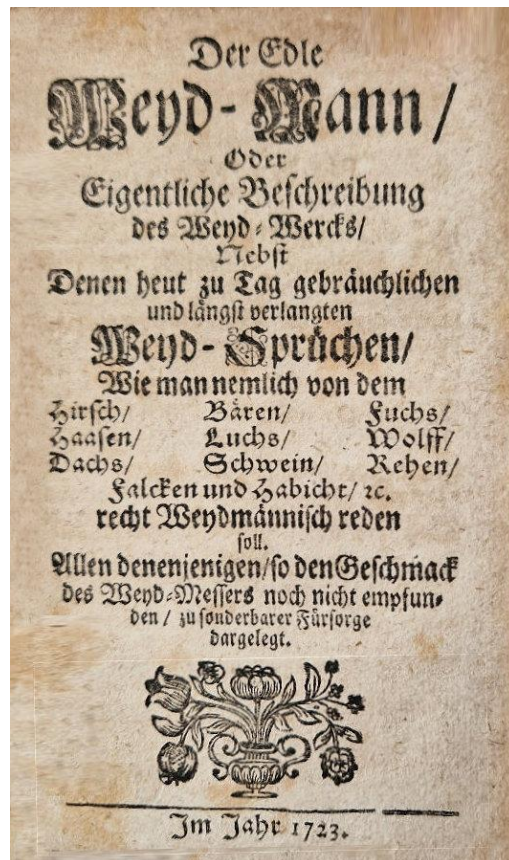 Der Edle
Weyd-Mann/
Oder
Eigentliche Beschreibung
des Weyd-Wercks/
Nebst
Denen heut zu Tag gebräuchlichen
und längst verlangten
Weyd-Sprüchen/
Wie man nemlich von dem
Hirsch/ Bären/ Fuchs/
Haasen/ Luchs/ Wolff/
Dachs/ Schwein/ Rehen/
Falcken und Habicht/ ꝛc.
recht Weydmännisch reden
soll.
Allen denenjenigen/ so den Geschmack
des Weyd-Messers noch nicht empfun-
den / zu sonderbarer Fürsorge
dargelegt.
Im Jahr 1723.